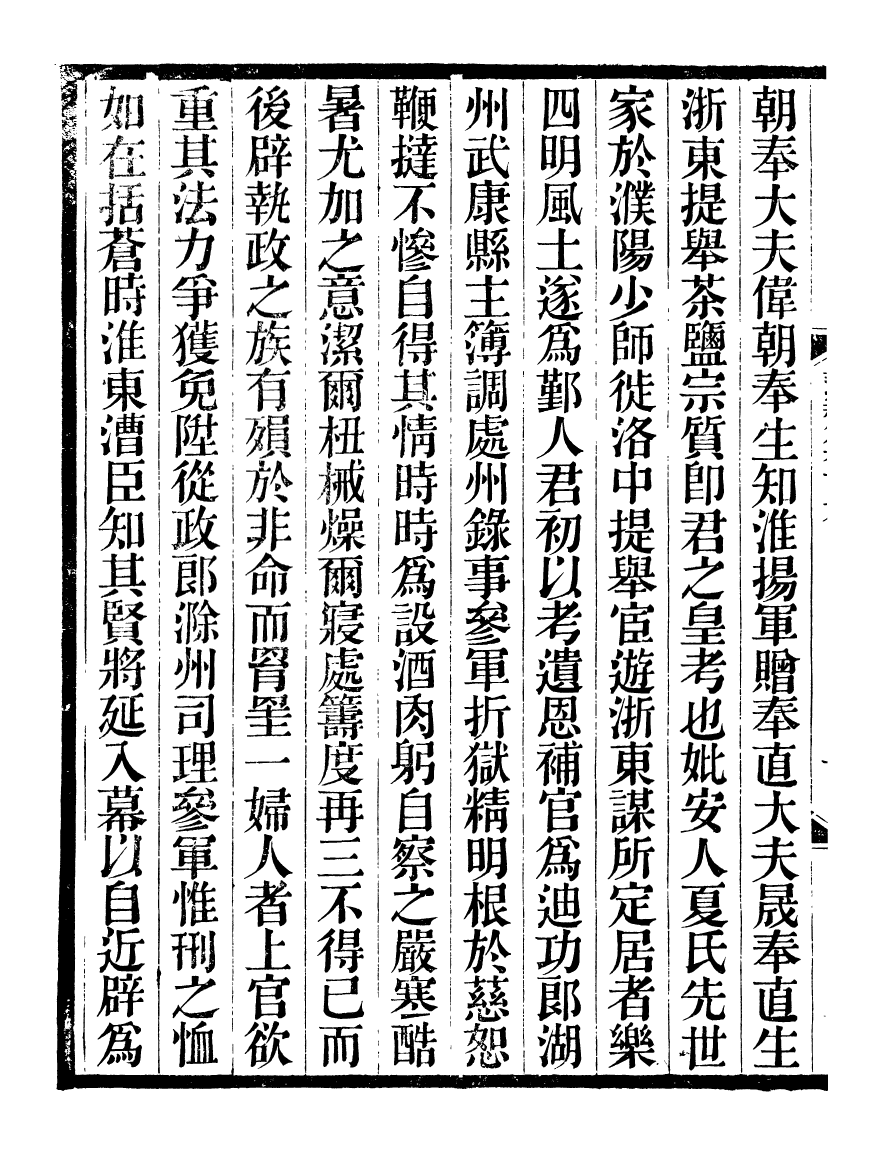 朝奉大夫偉朝奉生知淮揚軍贈奉直大夫晟奉直生
浙東提舉茶鹽宗質卽君之皇考也妣安人夏氏先世
家於濮陽少師徙洛中提舉宦遊浙東謀所定居者樂
四明風土遂爲鄞人君初以考遺恩補官爲迪功郎湖
州武康縣主簿調處州錄事參軍折獄精明根於慈恕
鞭撻不慘自得其情時時爲設酒肉躬自察之嚴寒酷
暑尤加之意潔爾杻械燥爾寢處籌度再三不得已而
後辟執政之族有殞於非命而胥里一婦人者上官欲
重其法力爭獲免陞從政郎滁州司理參軍惟刑之恤
如在括蒼時淮東漕臣知其賢將延入幕以自近辟爲